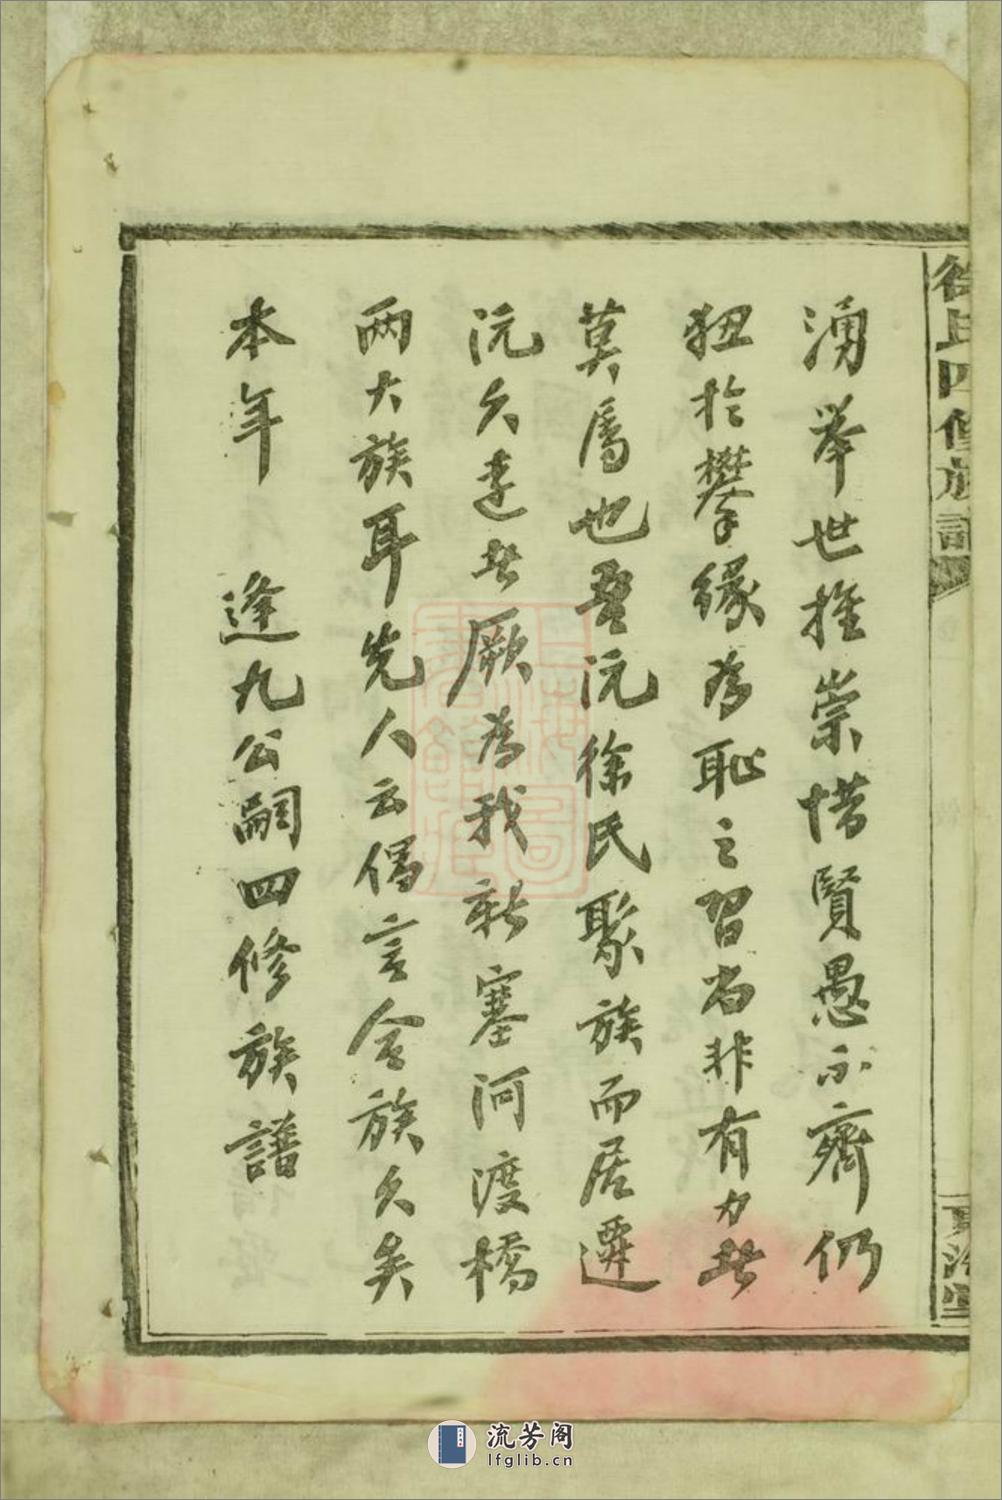 湧舉世推崇惜賢愚不齊仍
狃於攀緣為恥之習尚非有力者
莫屬也吾沅徐氏聚族而居遷
沅久遠者厥為我新塞河渡橋
两大族耳先人云傷言合族久矣
本年 逢九公嗣四修族譜
徐氏四修族譜
流芳阁
lfglib.cn